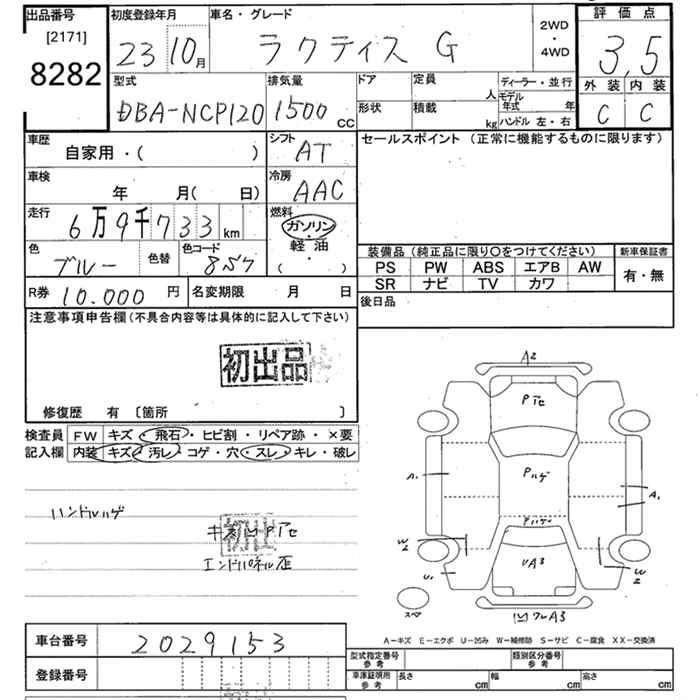 出品番号
[2171]
8282
初度登録年月
23 10月
車名・グレード
ラクティス G
2WD
・
4WD
評価点
3.5
外装 内装
C C
型式
DBA-NCP120
排気量
1500 cc
ドア
形状
定員
人
積載
kg
ディーラー・並行
モデル年式 年
ハンドル 左・右
車歴
自家用・( )
シフト
AT
セールスポイント (正常に機能するものに限ります)
車検
年 月( 日)
冷房
AAC
走行
6万9千733km
燃料
ガソリン
・
軽油
( ・ )
色
ブルー
色替
色コード
8S7
装備品 (純正品に限り○をつけてください)
PS PW ABS エアB AW
SR ナビ TV カワ
新車保証書
有・無
R券 10.000 円
名変期限 月 日
後日品
注意事項申告欄(不具合内容等は具体的に記入して下さい)
初出品
修復歴 有 〔箇所 〕
検査員
記入欄
FW キズ・飛石・ヒビ割・リペア跡・×要
内装 キズ・汚レ・コゲ・穴・スレ・キレ・破レ
ハンドルハゲ
初出
エンドパネル歪
A2
Pアセ
Pハゲ
Pハゲ
UA3
A1
A1
W2
W2
U1
スペア
A-キズ E-エクボ U-凹み W-補修跡 S-サビ C-腐食 XX-交換済
車台番号
2029153
登録番号
型式指定番号
参考
類別区分番号
参考
車庫証明用
参考
長さ cm
幅 cm
高さ cm